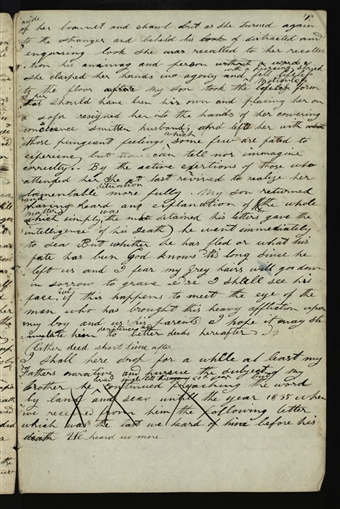 aside
of her bonnet and shawl but as she turned again
to the stranger and beheld his look of distracted and
enquiring look she was recalled to her recollec
tion his and person without a word
she clasped her hands in agony and fell
to the floor My son took the lifeless form
that should have been his own and placing her on
a sofa resigned her to the hands of her cowering
conscience smitten husband; and left her with
those pungent feelings, which some few are fated to
experience but none can tell not immagine
correctly. By the active exertions of those who
attended her she at last revived to realize her
lamentable situation more fully My son returned
and having heard an explanation of the whole
matter which simply was the detained his letters gave the
intelligence of his death) he went immediately
to sea But whither he has fled or what his
fate has been God knows tis long since he
left us and I fear my grey hairs will go down
in sorrow to grave e're I shall see his
face, but if this happens to meet the eye of the
man who has brought this heavy affliction upon
my boy and us his parents I hope it may
him better deeds hereafter
father died short time after
I shall here drop for a while at least my
Fathers narrative and pursue the subject of my
Brother he continued preaching the word
by land and sea until the year 1835 when
we received from him the following letter
which was the last we heard of him before his
death We heard no more